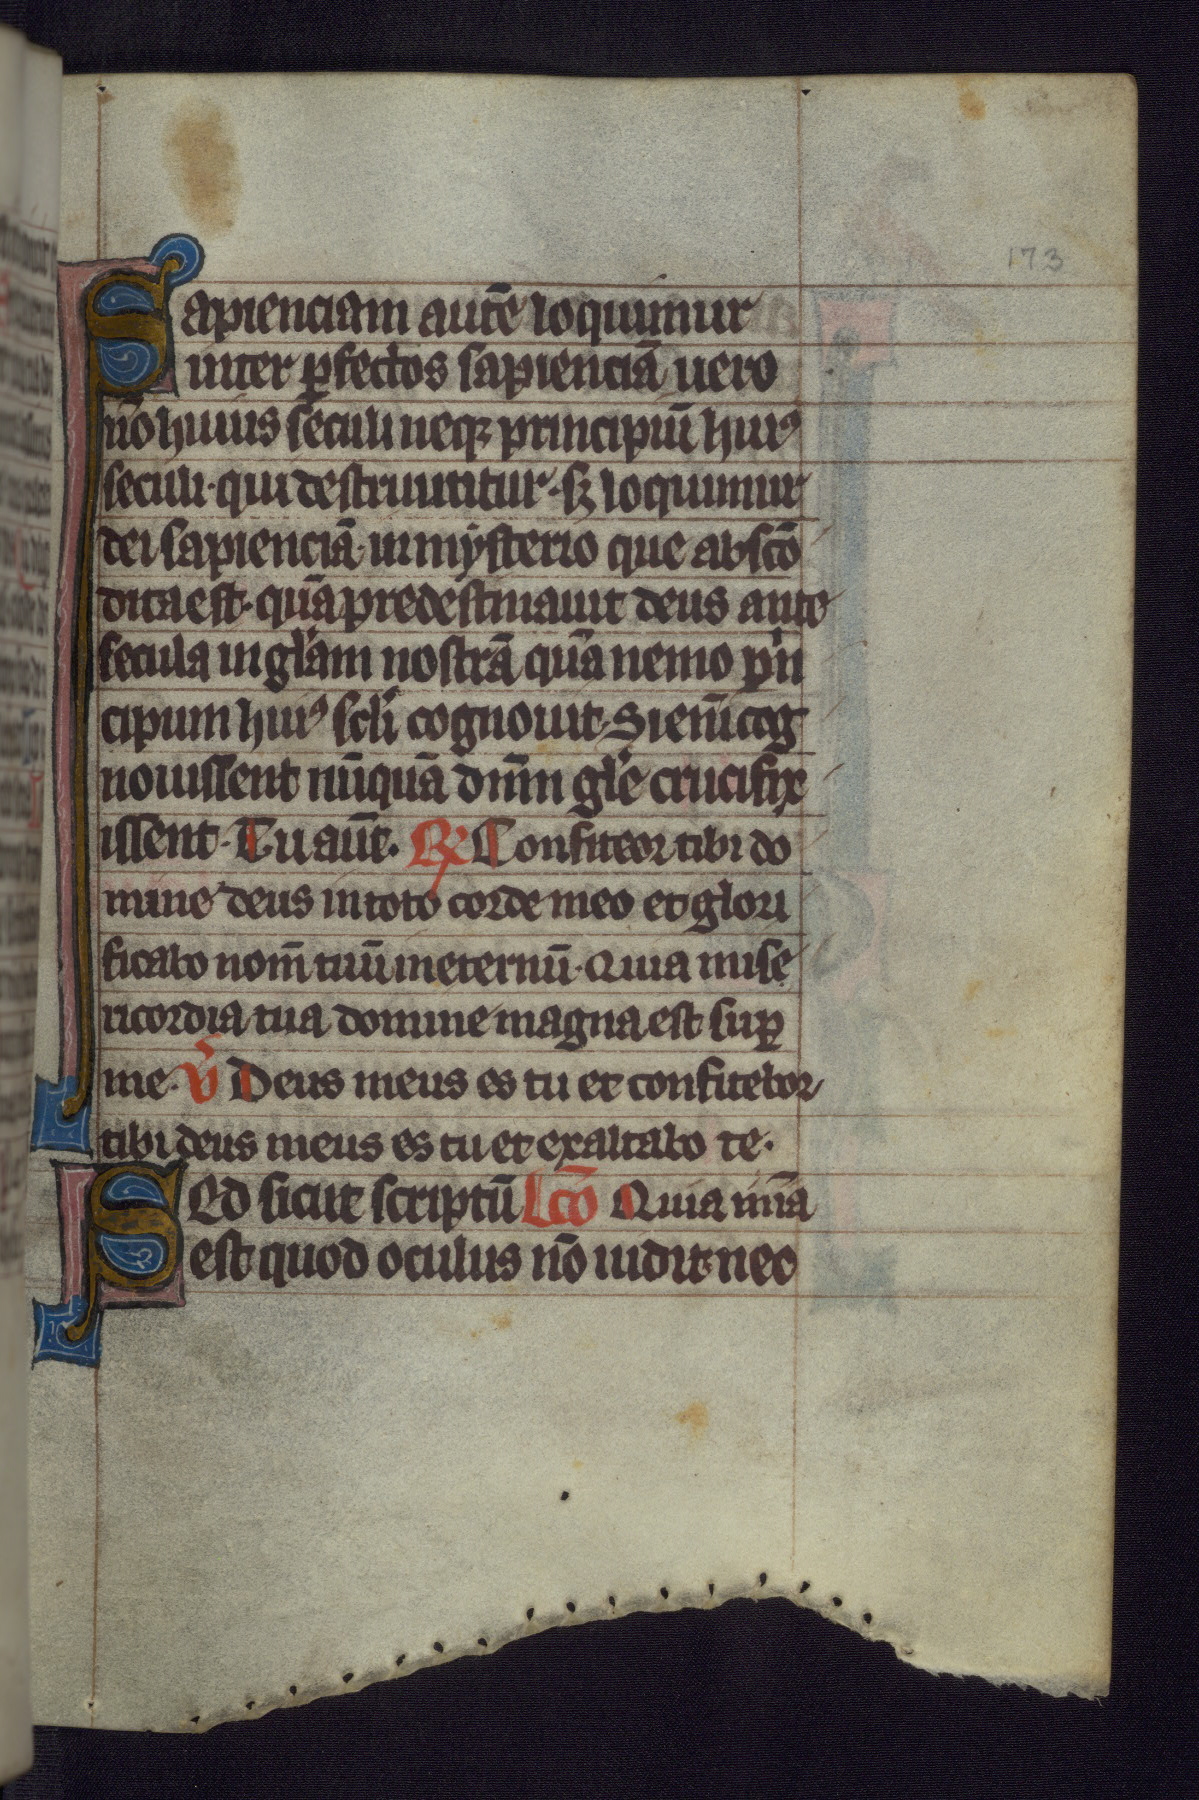 173
Sapienciam autē loquimur
inter ꝑfectos sapienciā uero
nō huius seculi neqꝫ principiū huiꝰ
seculi · qui destruuntur · sꝫ loquimur
dei sapienciā · in mẏsterio que abscō
dita est · quā predestinauit deus ante
secula in gl̄am nostrā quā nemo pͥn
cipum huiꝰ sclī cognouit · Si enī cog
nouissent nūquā dn̄m gl̄e crucifix
issent · Tu aūt · ℟ Confiteor tibi do
mine deus in toto corde meo et glori
ficabo nom̄ tuū in eternū · Quia mise
ricordia tua domine magna est suꝑ
me · v̄ Deus meus es tu et confitebor
tibi deus meus es tu et exaltabo te ·
Sed sicut scriptū lc̄o Quia nr̄a
est quod oculus nō uidit · nec